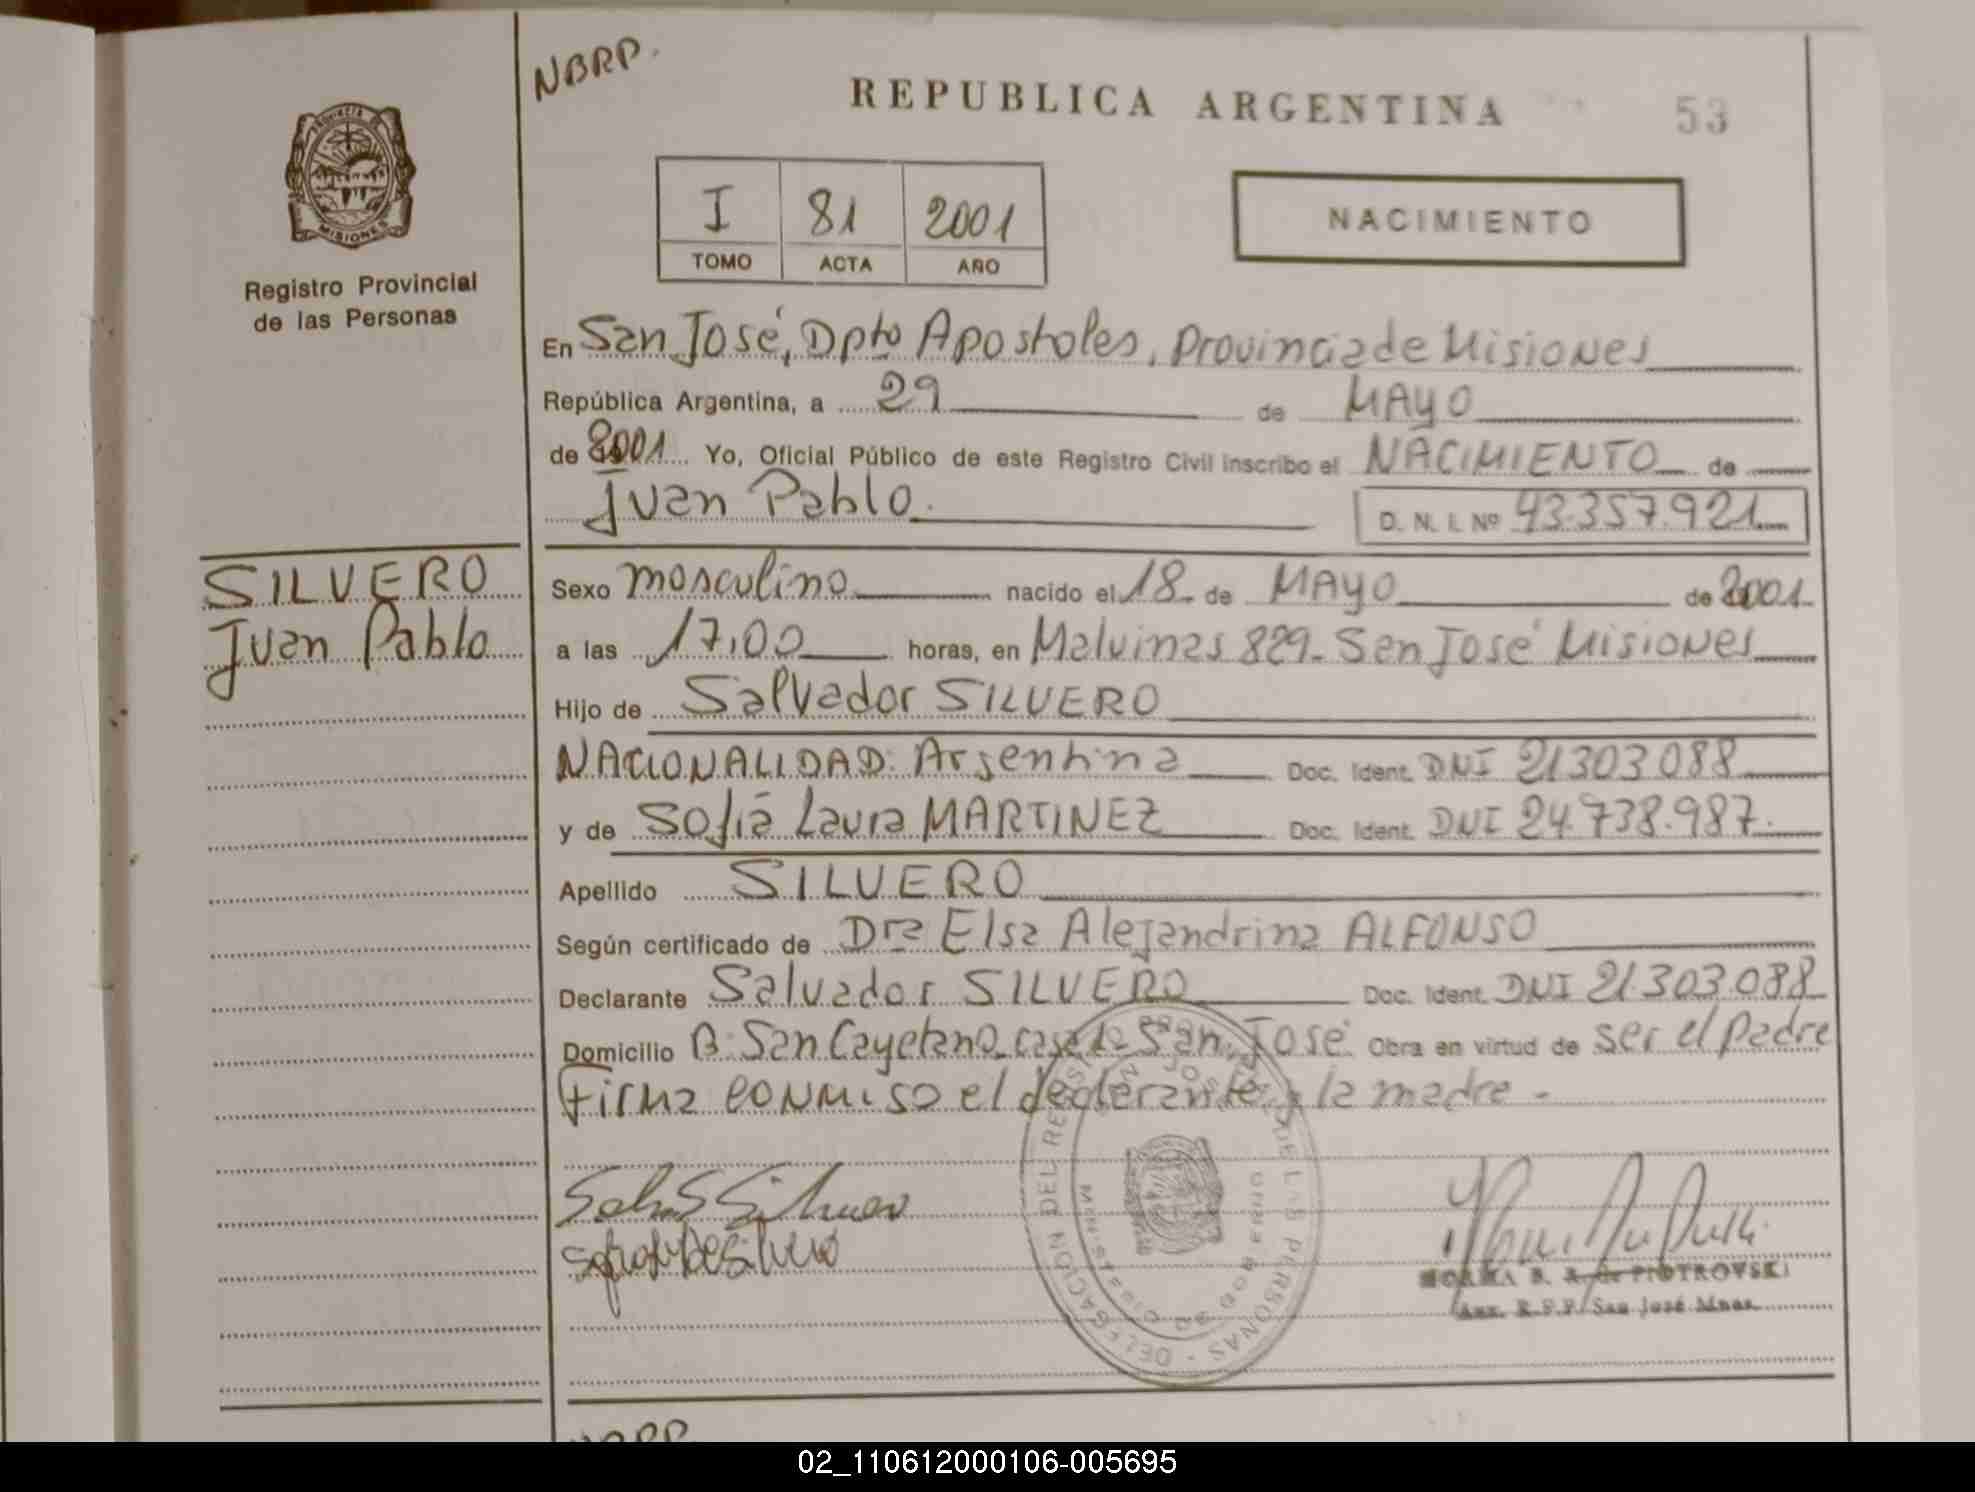 NBRP.
REPUBLICA ARGENTINA
53
PROVINCIA DE
MISIONES
Registro Provincial
de las Personas
I 81 2001
TOMO ACTA AÑO
NACIMIENTO
En San José, Dpto Apostoles, Provincia de Misiones
República Argentina, a 29 de MAYO
de 2001 Yo, Oficial Público de este Registro Civil inscribo el NACIMIENTO de
Juan Pablo. D. N. I. Nº 43.357.921
SILVERO
Juan Pablo
Sexo masculino nacido el 18 de MAYO de 2001
a las 17,00 horas, en Malvinas 829- San José Misiones
Hijo de Salvador SILVERO
NACIONALIDAD: Argentina Doc. Ident. DNI 21303088
y de Sofia Laura MARTINEZ Doc. Ident. DNI 24.738.987.
Apellido SILVERO
Según certificado de Dra Elsa Alejandrina ALFONSO
Declarante Salvador SILVERO Doc. Ident. DNI 21.303.088
Domicilio B: San Cayetano casa San José Obra en virtud de ser el padre
Firma conmiso el declarante y la madre -
DELEGACION DEL REGISTRO DE LAS PERSONAS
NORMA B. de PIOTROVSKI
Aux. R.P.P. San José Mnes.
NBRP.
02_110612000106-005695